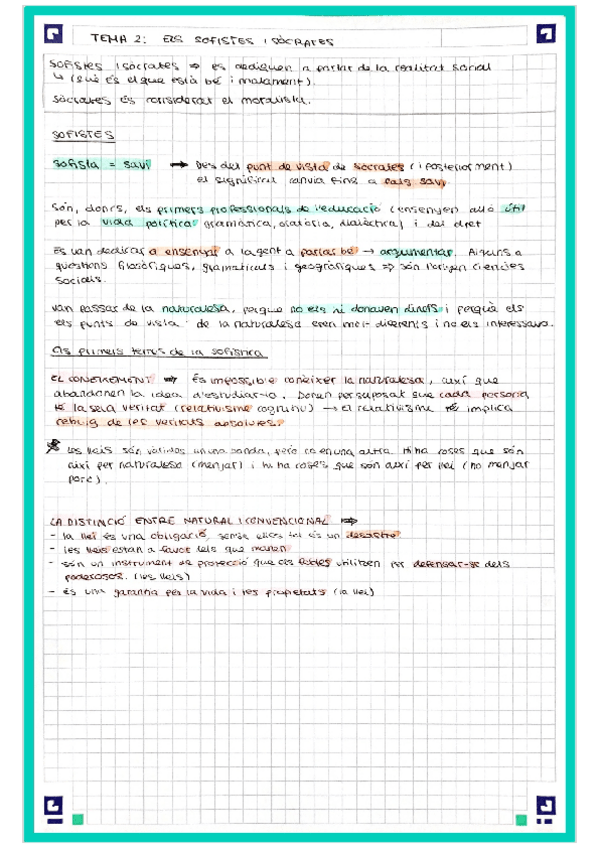 TEMA 2: ELS SOFISTES I SÒCRATES
Sofistes i Sòcrates ⇒ es dediquen a parlar de la realitat social
↳ (què és el que està bé i malament).
Sòcrates és considerat el moralista.
SOFISTES
Sofista = savi → Des del punt de vista de Sòcrates (i posteriorment)
el significat canvia fins a fals savi
Són, doncs, els primers professionals de l'educació (ensenyen allò útil
per la vida política: gramàtica, oratòria, dialèctica) i del dret
Es van dedicar a ensenyar a la gent a parlar bé → argumentar. Alguns a
qüestions filosòfiques, gramaticals i geogràfiques ⇒ són l'origen ciències
socials.
Van passar de la naturalesa, perquè no els hi donaven diners i perquè els
els punts de vista de la naturalesa eren molt diferents i no els interessava.
Els primers temes de la sofística
EL CONEIXEMENT ⇒ És impossible conèixer la naturalesa, així que
abandonen la idea d'estudiar-ho. Donen per suposat que cada persona
té la seva veritat (relativisme cognitiu) → el relativisme implica
rebuig de les veritats absolutes.
les lleis són vàlides en una banda, però no en una altra. Hi ha coses que són
així per naturalesa (menjar) i hi ha coses que són així per llei (no menjar
porc).
LA DISTINCIÓ ENTRE NATURAL I CONVENCIONAL ⇒
- la llei és una obligació, sense elles tot és un desastre
- les lleis estan a favor dels que manen
- són un instrument de protecció que els febles utilitzen per defensar-se dels
poderosos. (les lleis)
- és una garantia per la vida i les propietats (la llei)